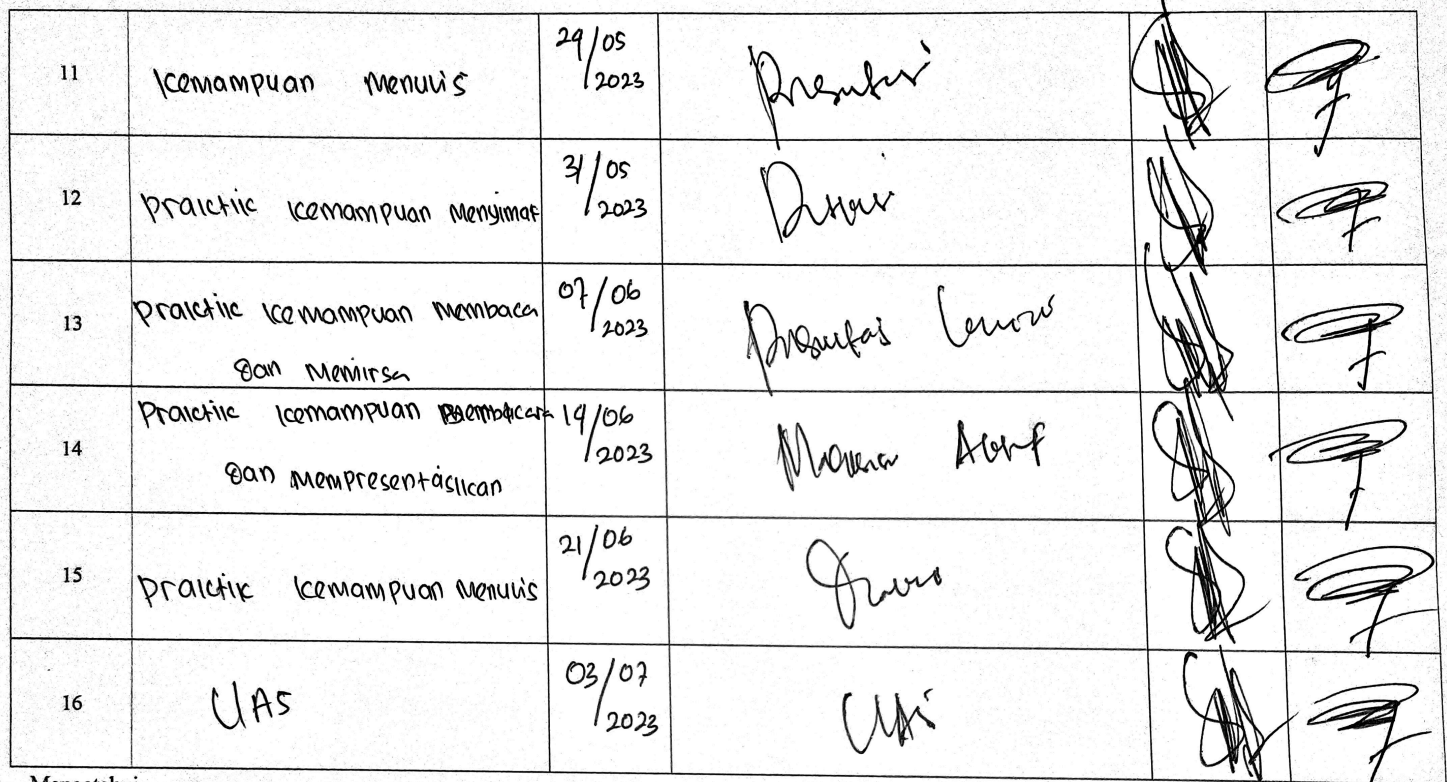 11 Kemampuan Menulis 29/05 2023 Presentasi
12 Praktik Kemampuan Menyimak 31/05 2023 Diskusi
13 Praktik Kemampuan Membaca 07/06 2023 Presentasi
dan Memirsa
14 Praktik Kemampuan 14/06 2023
dan Mempresentasikan
15 Praktik Kemampuan Menulis 21/06 2023
16 UAS 03/07 2023 UAS